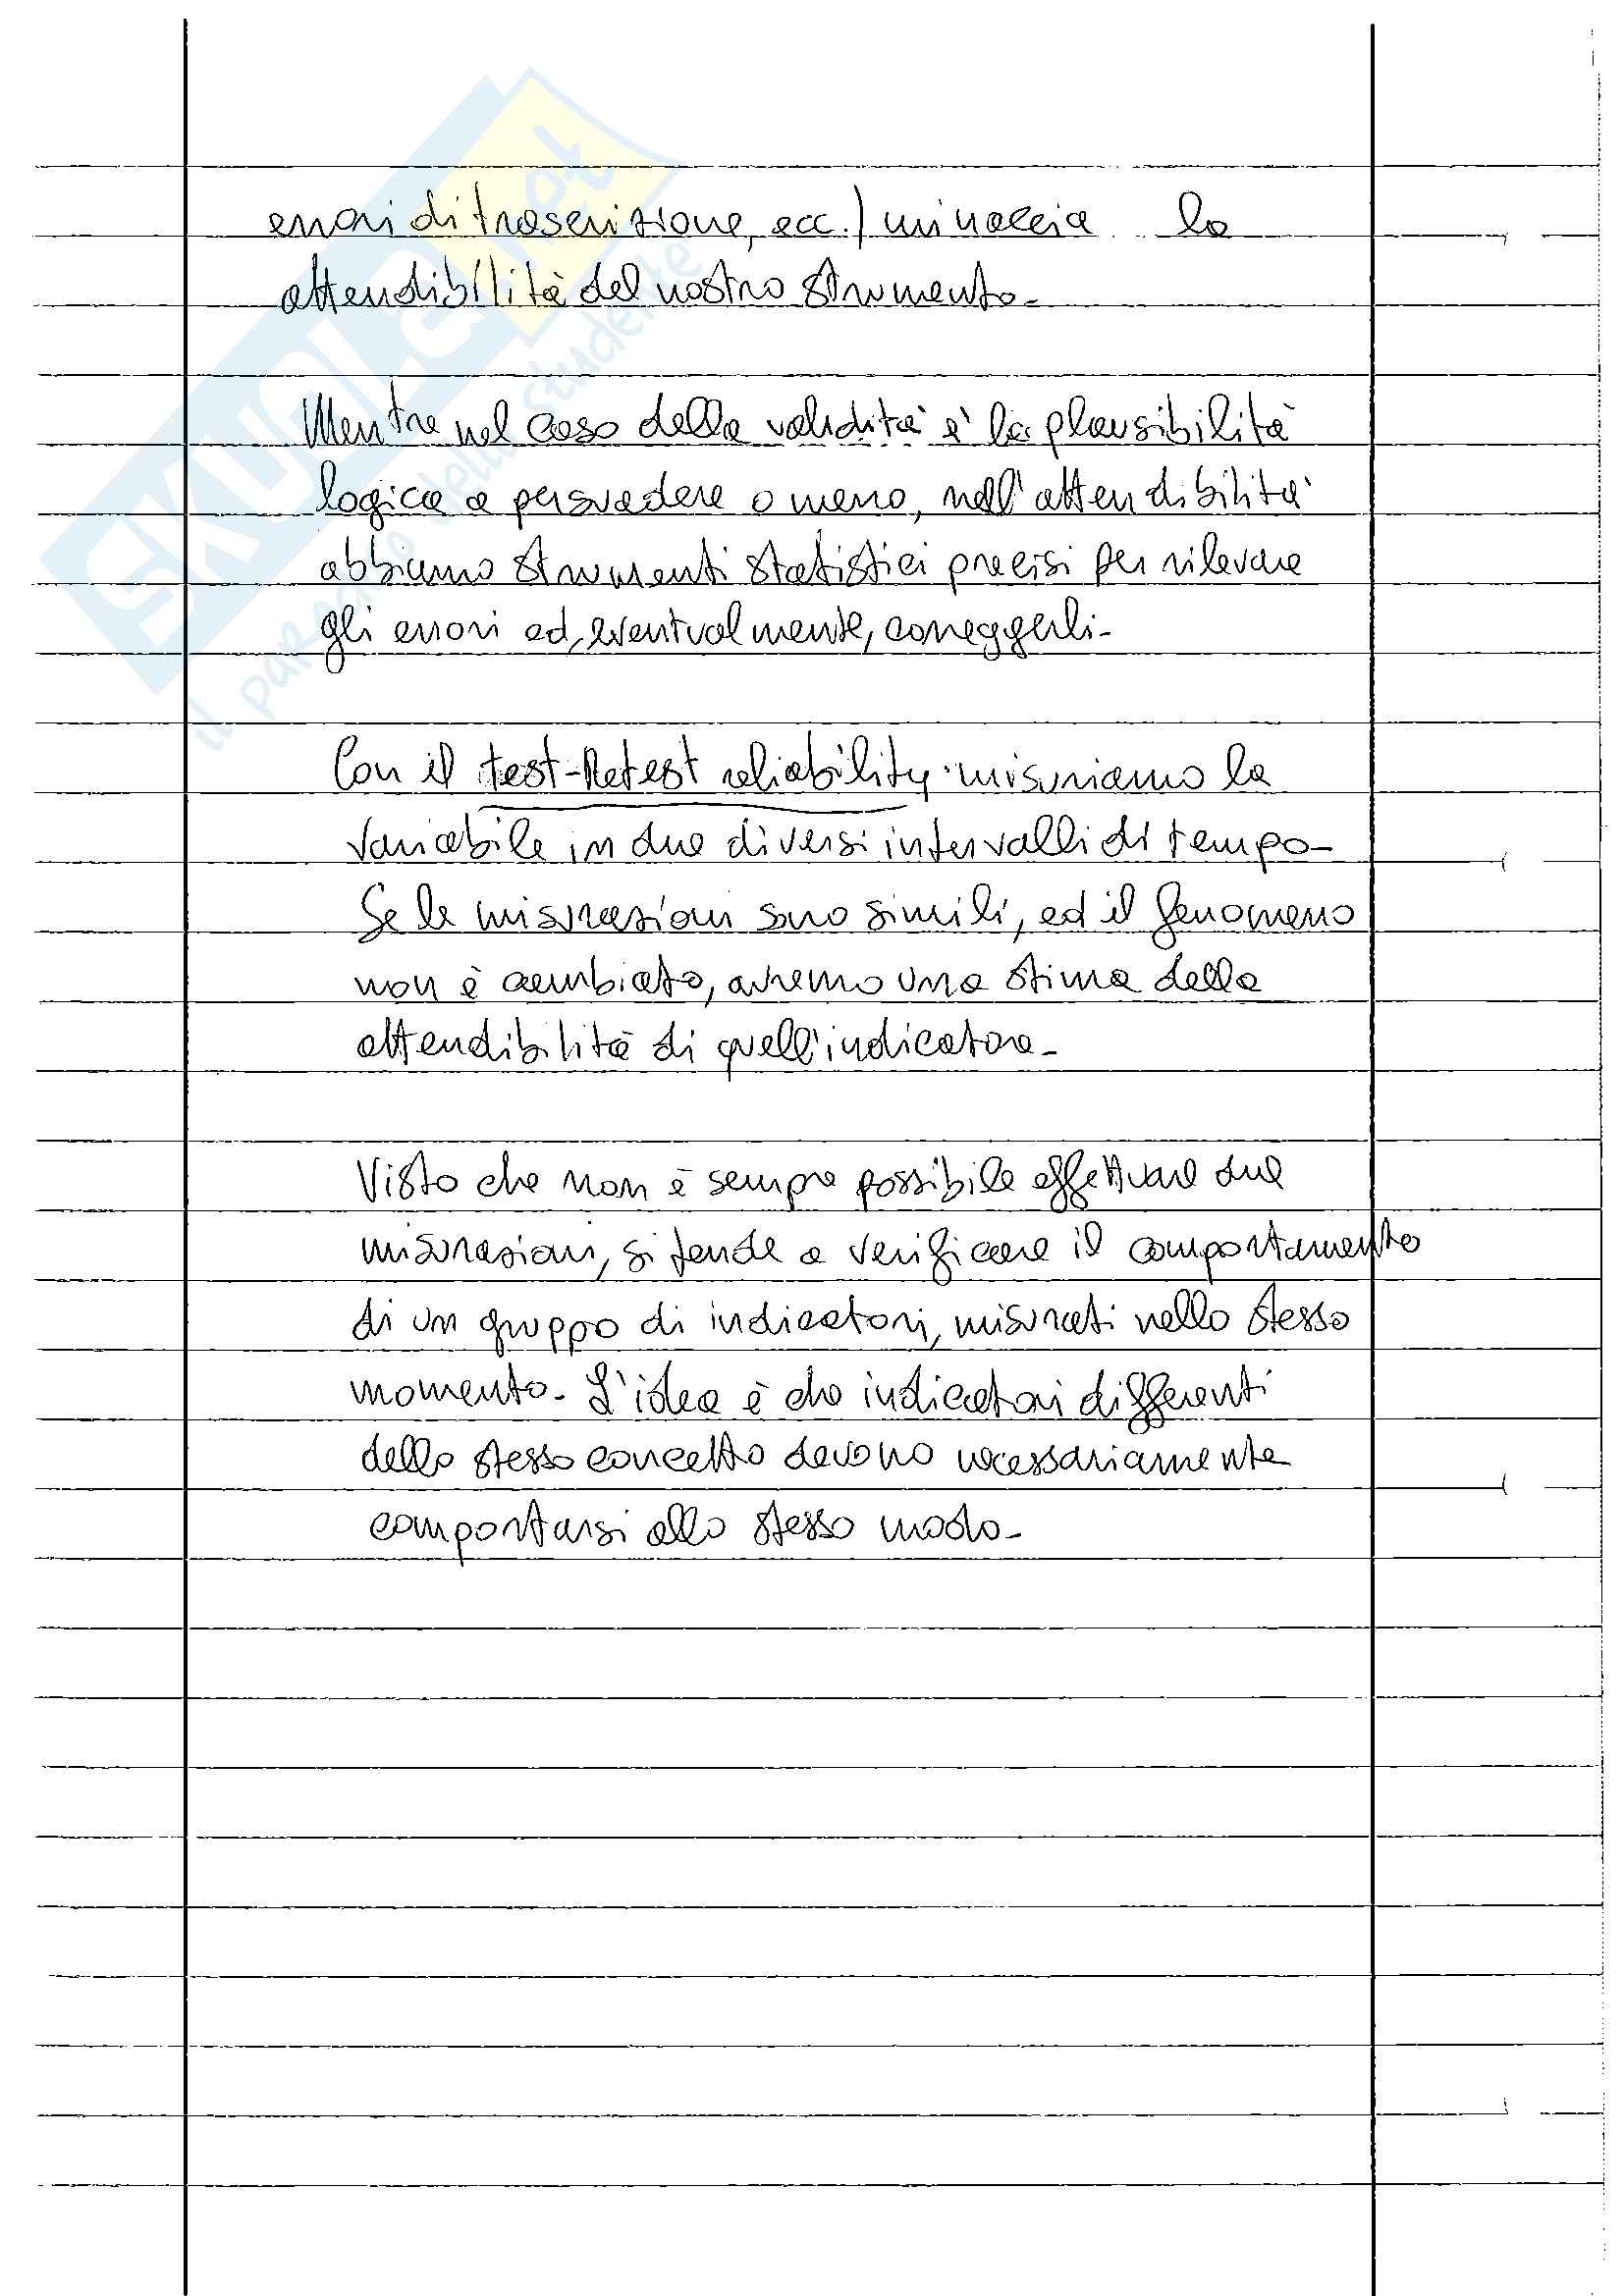 SKUOLA.net
il paradiso dello studente
errori di trascrizione, ecc.) minaccia la
attendibilità del nostro strumento.
Mentre nel caso della validità è la plausibilità
logica a persuadere o meno, nell'attendibilità
abbiamo strumenti statistici precisi per rilevare
gli errori ed, eventualmente, correggerli.
Con il test-Retest reliability misuriamo la
variabile in due diversi intervalli di tempo.
Se le misurazioni sono simili, ed il fenomeno
non è cambiato, avremo una stima della
attendibilità di quell'indicatore.
Visto che non è sempre possibile effettuare due
misurazioni, si tende a verificare il comportamento
di un gruppo di indicatori, misurati nello stesso
momento. L'idea è che indicatori differenti
dello stesso concetto devono necessariamente
comportarsi allo stesso modo.